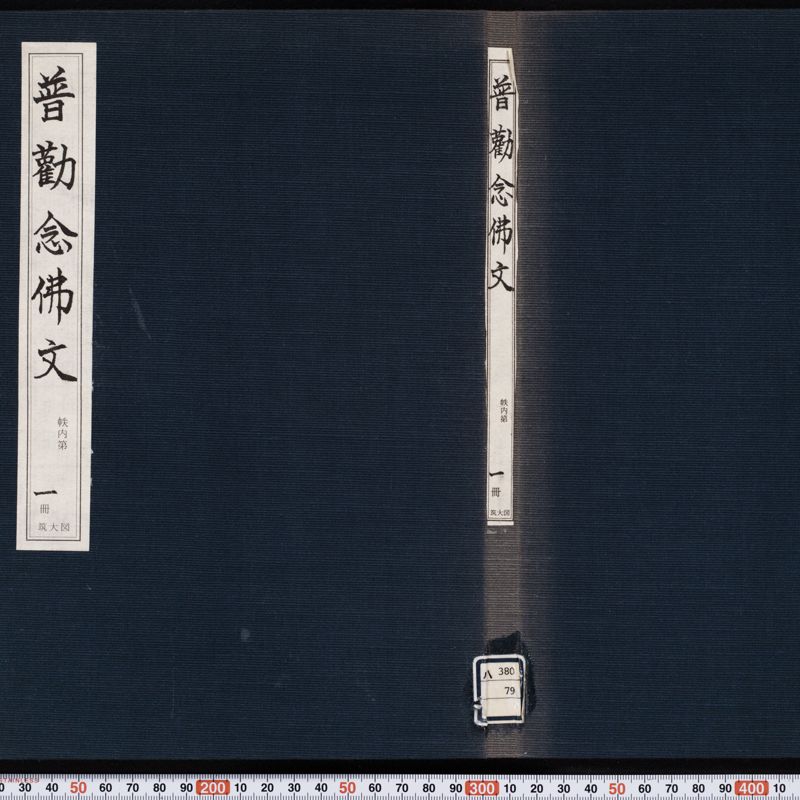 普勸念佛文
帙内第
一
冊
筑大図
普勸念佛文
帙内第
一
冊
筑大図
八 380
79
STAINLESS
0 10 20 30 40 50 60 70 80 90 200 10 20 30 40 50 60 70 80 90 300 10 20 30 40 50 60 70 80 90 400 10